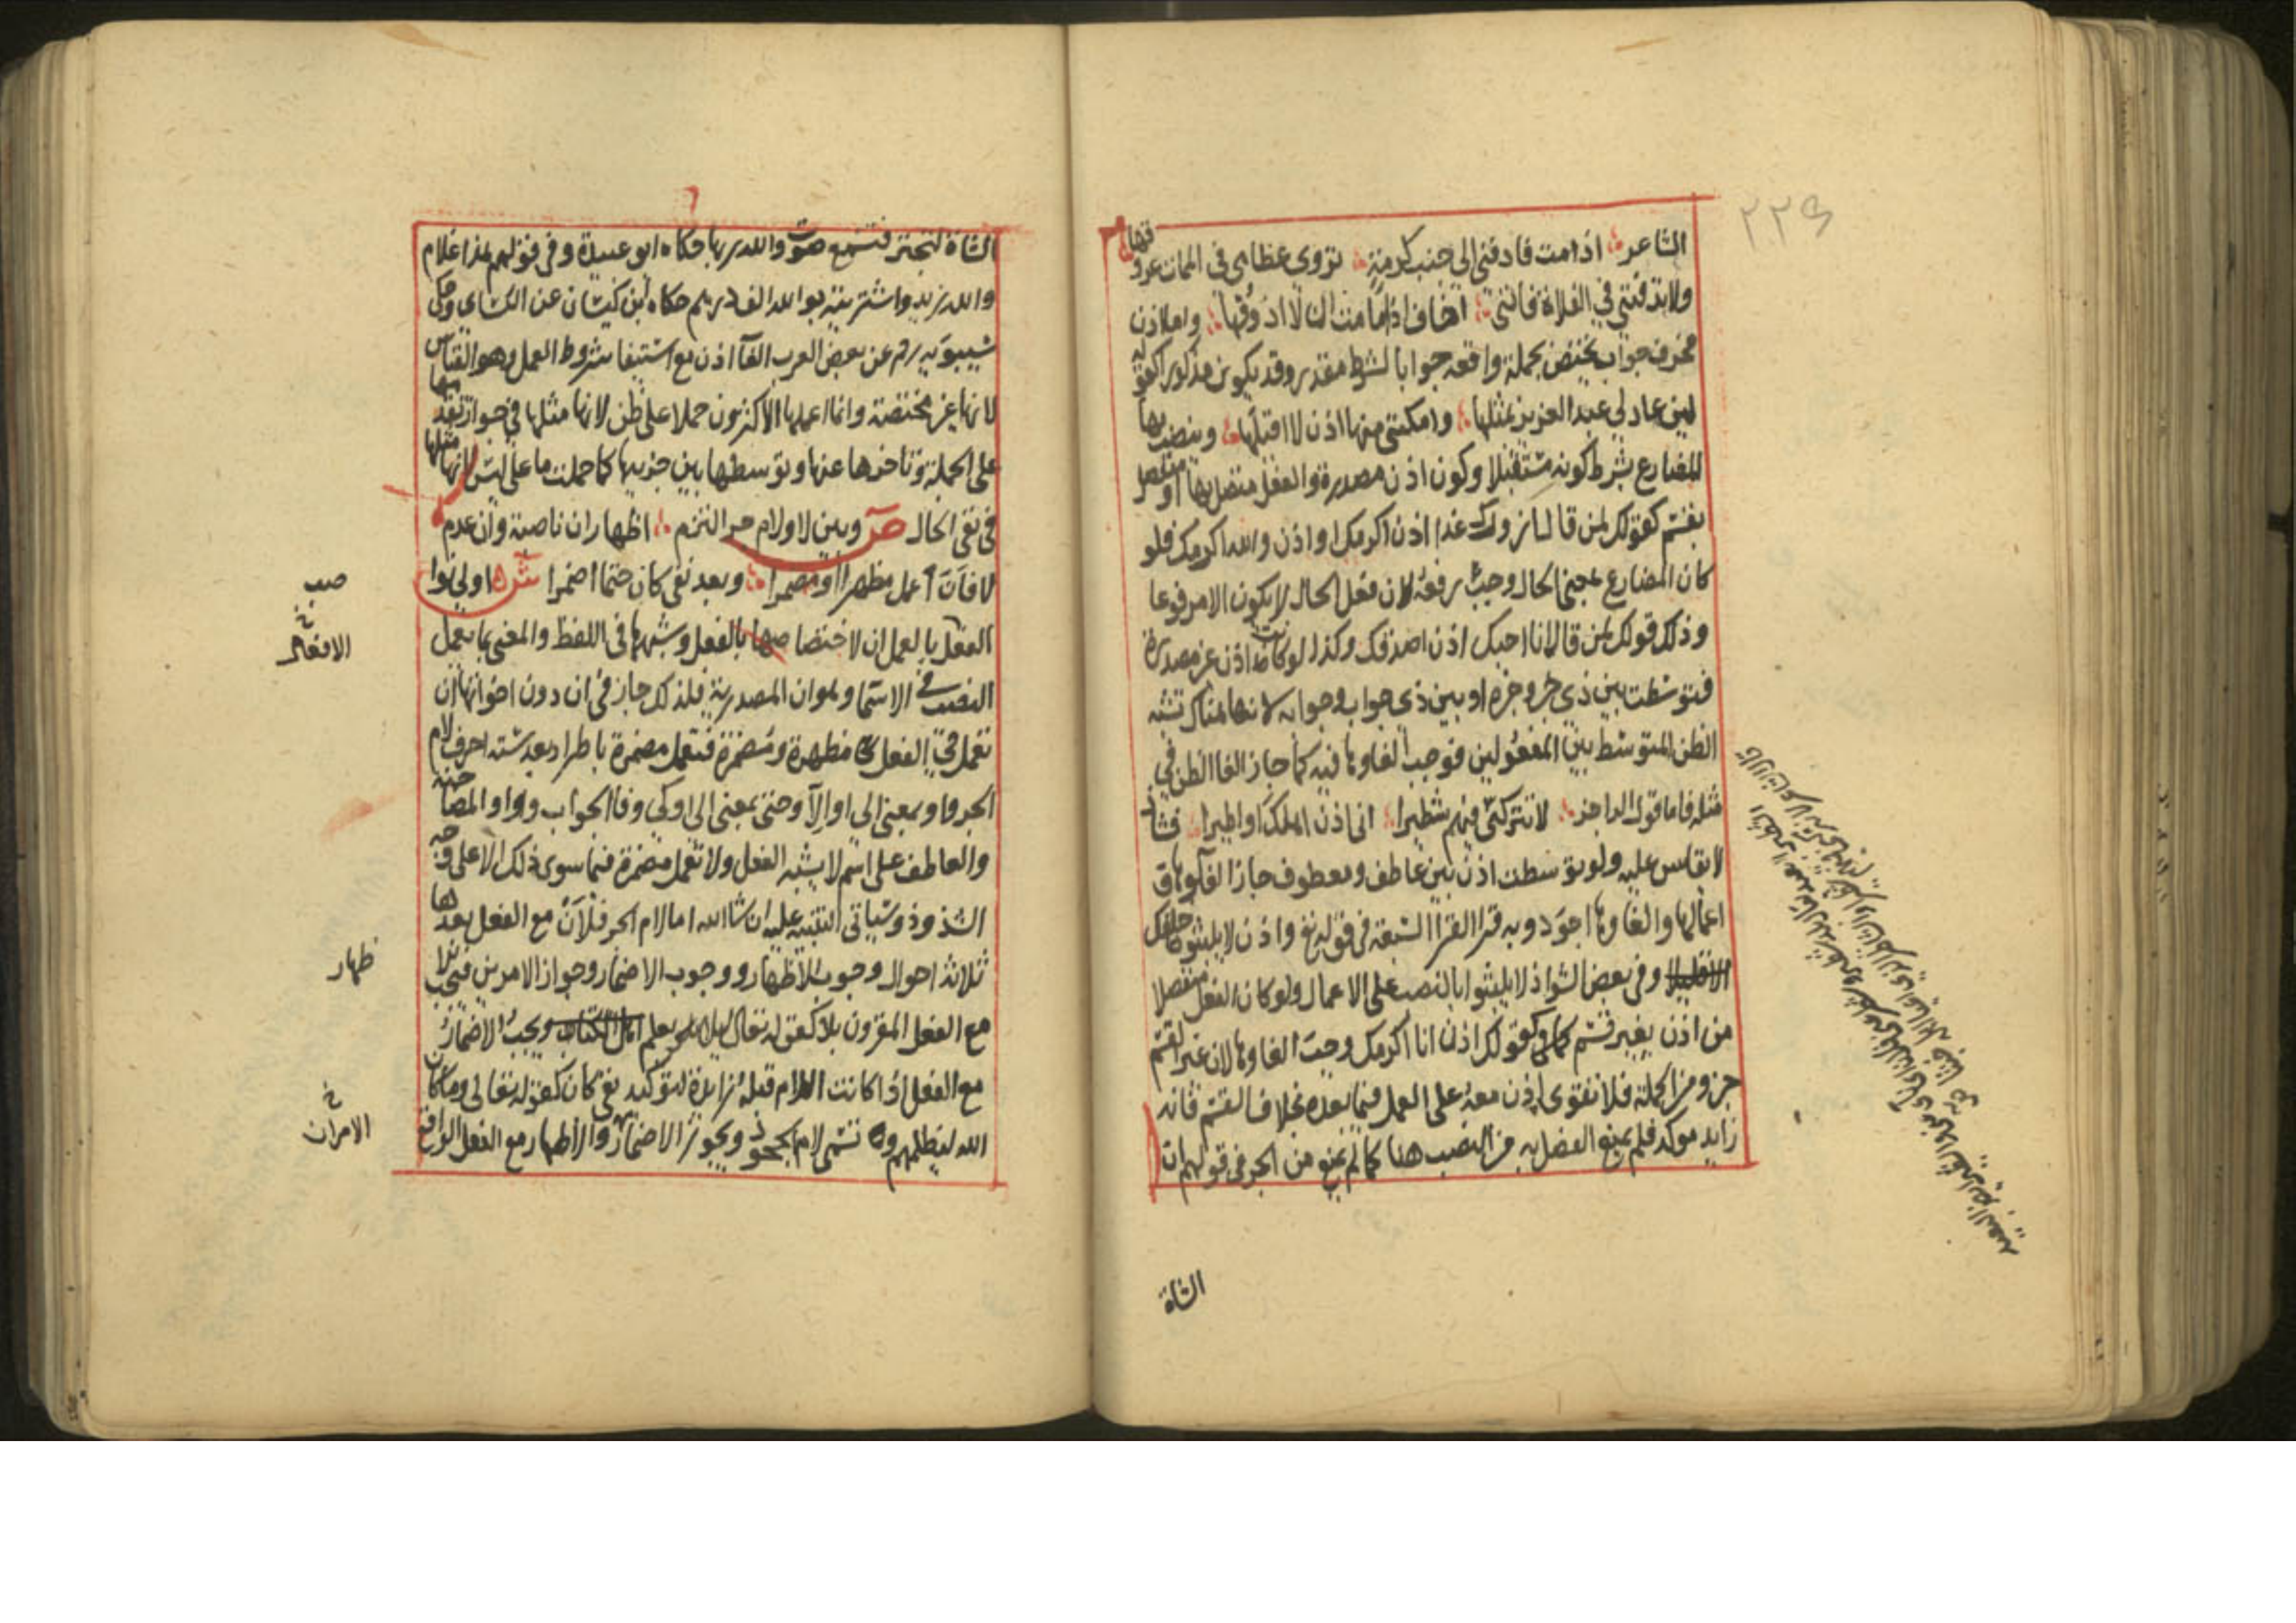 ٢٢٩
الشاعر اذا مت فادفني الى جنب كرمة تروي عظامي في الممات عروقها
ولا تدفنني في الفلاة فانني اخاف اذا ما مت ان لا اذوقها واما اذن
فحرف جواب يختص بجملة واقعه جوابا لشرط مقدر وقد يكون مذكورا كقوله
لين عاد لي عبد العزيز بمثلها وامكنني منها اذن لا اقيلها وينصب بها
المضارع بشرط كونه مستقبلا وكون اذن مصدرة والفعل متصل بها او منفصل
بقسم كقولك لمن قال ازورك غدا اذن اكرمك او اذن والله اكرمك فلو
كان المضارع بمعنى الحال وجب رفعه لان فعل الحال لا يكون الا مرفوعا
وذلك قولك لمن قال انا احبك اذن اصدقك وكذا لو كانت اذن غير مصدرة
فتوسطت بين ذي خبر وخبره او بين ذي جواب وجوابه لانها هناك تشبه
الظن المتوسط بين المفعولين فوجب الغاوها فيه كما جاز الغا الظن في
مثله فاما قول الراجز لا تتركني فيهم شطيرا اني اذن اهلك او اطيرا فشاذ
لا يقاس عليه ولو توسطت اذن بين عاطف ومعطوف جاز الغاوها و
اعمالها والغاوها اجود وبه قرا القرا السبعة في قوله تع واذن لا يلبثون خلافك
الا قليلا وفي بعض الشواذ لا يلبثوا بالنصب على الاعمال ولو كان الفعل منفصلا
من اذن بغير قسم كقولك اذن انا اكرمك وجب الغاوها لان غير القسم
جزو من الجملة فلا تقوى اذن معه على العمل فيما بعده بخلاف القسم فانه
زايد موكد فلم يمنع الفصل به من النصب هنا كما لم يمنع من الجر في قولهم ان
الشاة
الشاة لتجتر فتسمع صوت والله ربها حكاه ابو عبيدة وفي قولهم هذا غلام
والله زيد واشتريته بوالله الف درهم حكاه ابن كيسان عن الكساى وحكى
سيبويه رحم عن بعض العرب الغآ اذن مع استيفا شروط العمل وهو القياس
لانها غير مختصة وانما اعملها الاكثرون حملا على ظن لانها مثلها في جواز تقدمها
على الجملة وتاخرها عنها وتوسطها بين جزيها كما حملت ما على ليس لانها مثلها
في نفي الحال ص وبين لا ولام جر التزم اظهار ان ناصبة وان عدم
لا فان اعمل مظهرا او مضمرا وبعد نفي كان حتما اضمرا ش اولى نوا
صب
الفعل بالعمل ان لاختصاصها بالفعل وشبهها في اللفظ والمعنى بما يعمل
خ
الافعال
النصب في الاسما وهو ان المصدرية فلذلك جاز في ان دون اخواتها ان
تعمل في الفعل مظهرة ومضمرة فتعمل مضمرة باطراد بعد ستة احرف لام
الجر واو بمعنى الى او الا وحتى بمعنى الى او كي وفا الجواب وواو المصاحبة
والعاطف على اسم لا يشبه الفعل ولا تعمل مضمرة فيما سوى ذلك الا على وجه
الشذوذ وسياتي التنبيه عليه ان شا الله اما لام الجر فلان مع الفعل بعدها
ثلاثة احوال وجوب الاظهار ووجوب الاضمار وجواز الامرين فيجب
ظهار
مع الفعل المقرون بلا كقوله تعالى ليلا يعلم اهل الكتاب ويجب الاضمار
مع الفعل اذا كانت اللام قبله زايدة لتوكيد نفي كان كقوله تعالى وما كان
الله ليظلمهم وتسمى لام الجحود ويجوز الاضمار والاظهار مع الفعل الواقع
خ
الامران